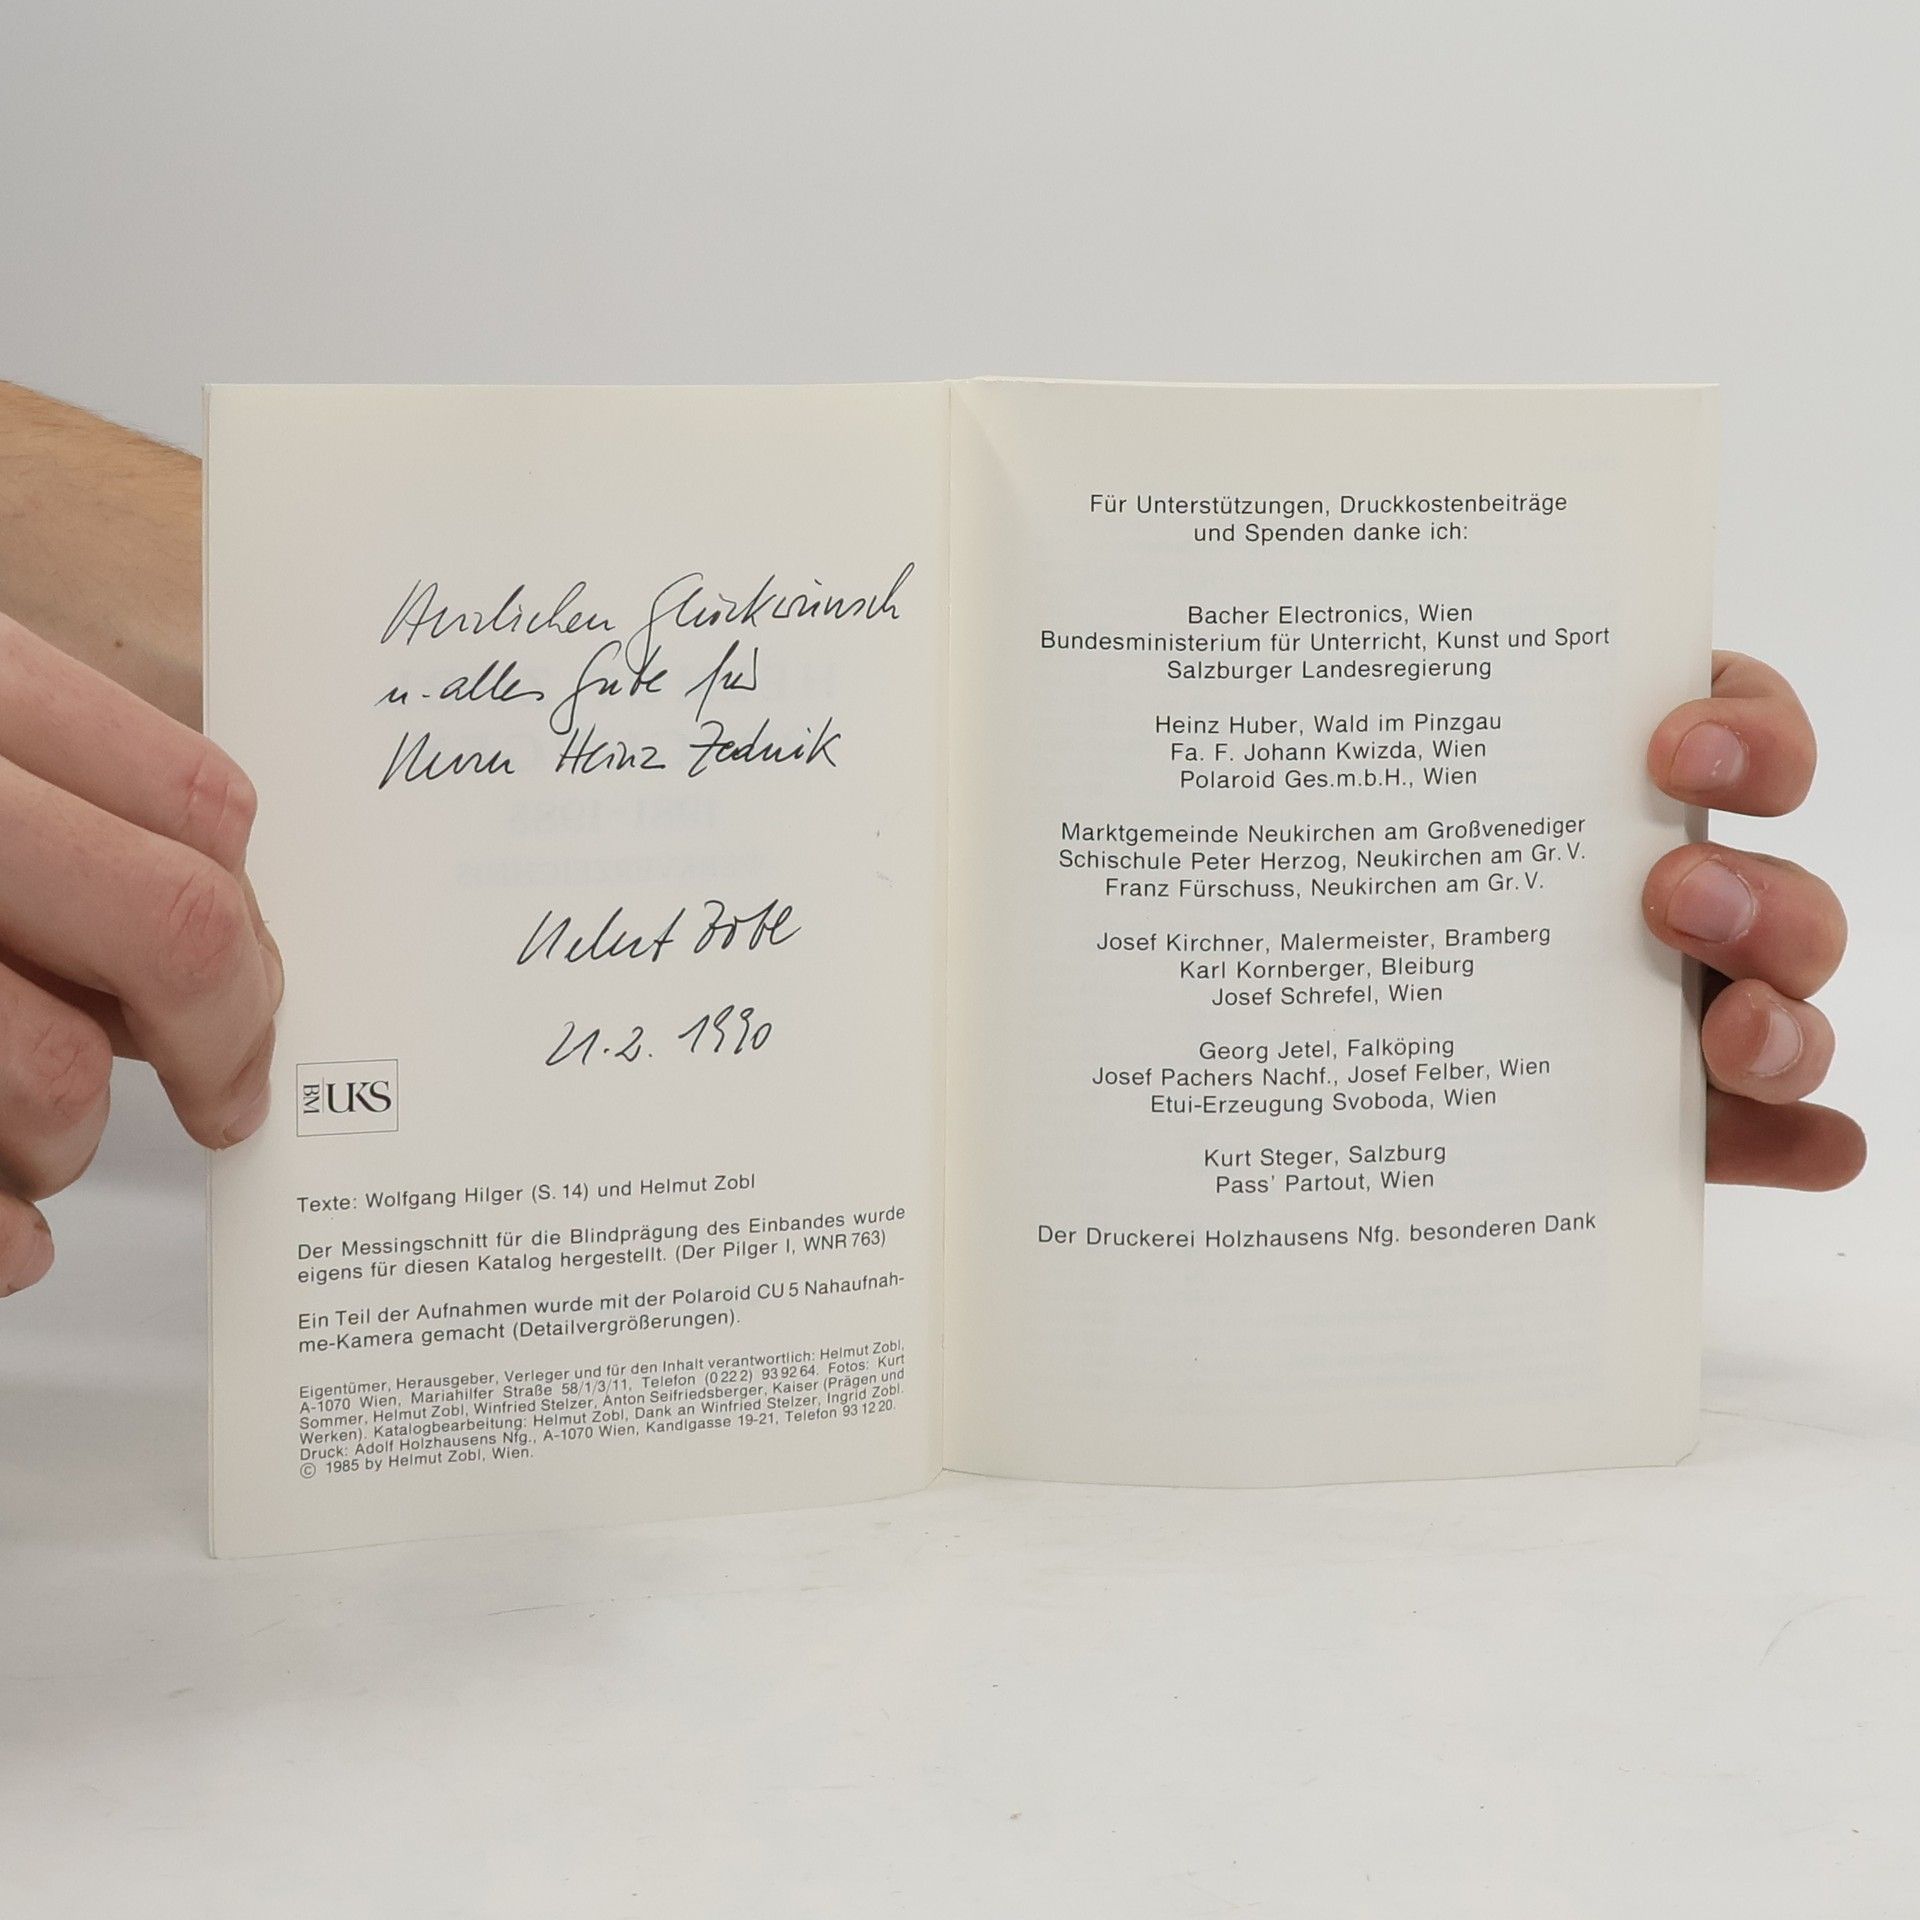 Herzlichen Glückwunsch
u. alles Gute für
Herrn Heinz Zednik
Helmut Zobl
21.2.1990
BM UKS
Texte: Wolfgang Hilger (S. 14) und Helmut Zobl
Der Messingschnitt für die Blindprägung des Einbandes wurde
eigens für diesen Katalog hergestellt. (Der Pilger I, WNR 763)
Ein Teil der Aufnahmen wurde mit der Polaroid CU 5 Nahaufnah-
me-Kamera gemacht (Detailvergrößerungen).
Eigentümer, Herausgeber, Verleger und für den Inhalt verantwortlich: Helmut Zobl,
A-1070 Wien, Mariahilfer Straße 58/1/3/11, Telefon (0 22 2) 93 92 64. Fotos: Kurt
Sommer, Helmut Zobl, Winfried Stelzer, Anton Seifriedsberger, Kaiser (Prägen und
Werken). Katalogbearbeitung: Helmut Zobl, Dank an Winfried Stelzer, Ingrid Zobl.
Druck: Adolf Holzhausens Nfg., A-1070 Wien, Kandlgasse 19-21, Telefon 93 12 20.
© 1985 by Helmut Zobl, Wien.
Für Unterstützungen, Druckkostenbeiträge
und Spenden danke ich:
Bacher Electronics, Wien
Bundesministerium für Unterricht, Kunst und Sport
Salzburger Landesregierung
Heinz Huber, Wald im Pinzgau
Fa. F. Johann Kwizda, Wien
Polaroid Ges.m.b.H., Wien
Marktgemeinde Neukirchen am Großvenediger
Schischule Peter Herzog, Neukirchen am Gr. V.
Franz Fürschuss, Neukirchen am Gr. V.
Josef Kirchner, Malermeister, Bramberg
Karl Kornberger, Bleiburg
Josef Schrefel, Wien
Georg Jetel, Falköping
Josef Pachers Nachf., Josef Felber, Wien
Etui-Erzeugung Svoboda, Wien
Kurt Steger, Salzburg
Pass' Partout, Wien
Der Druckerei Holzhausens Nfg. besonderen Dank